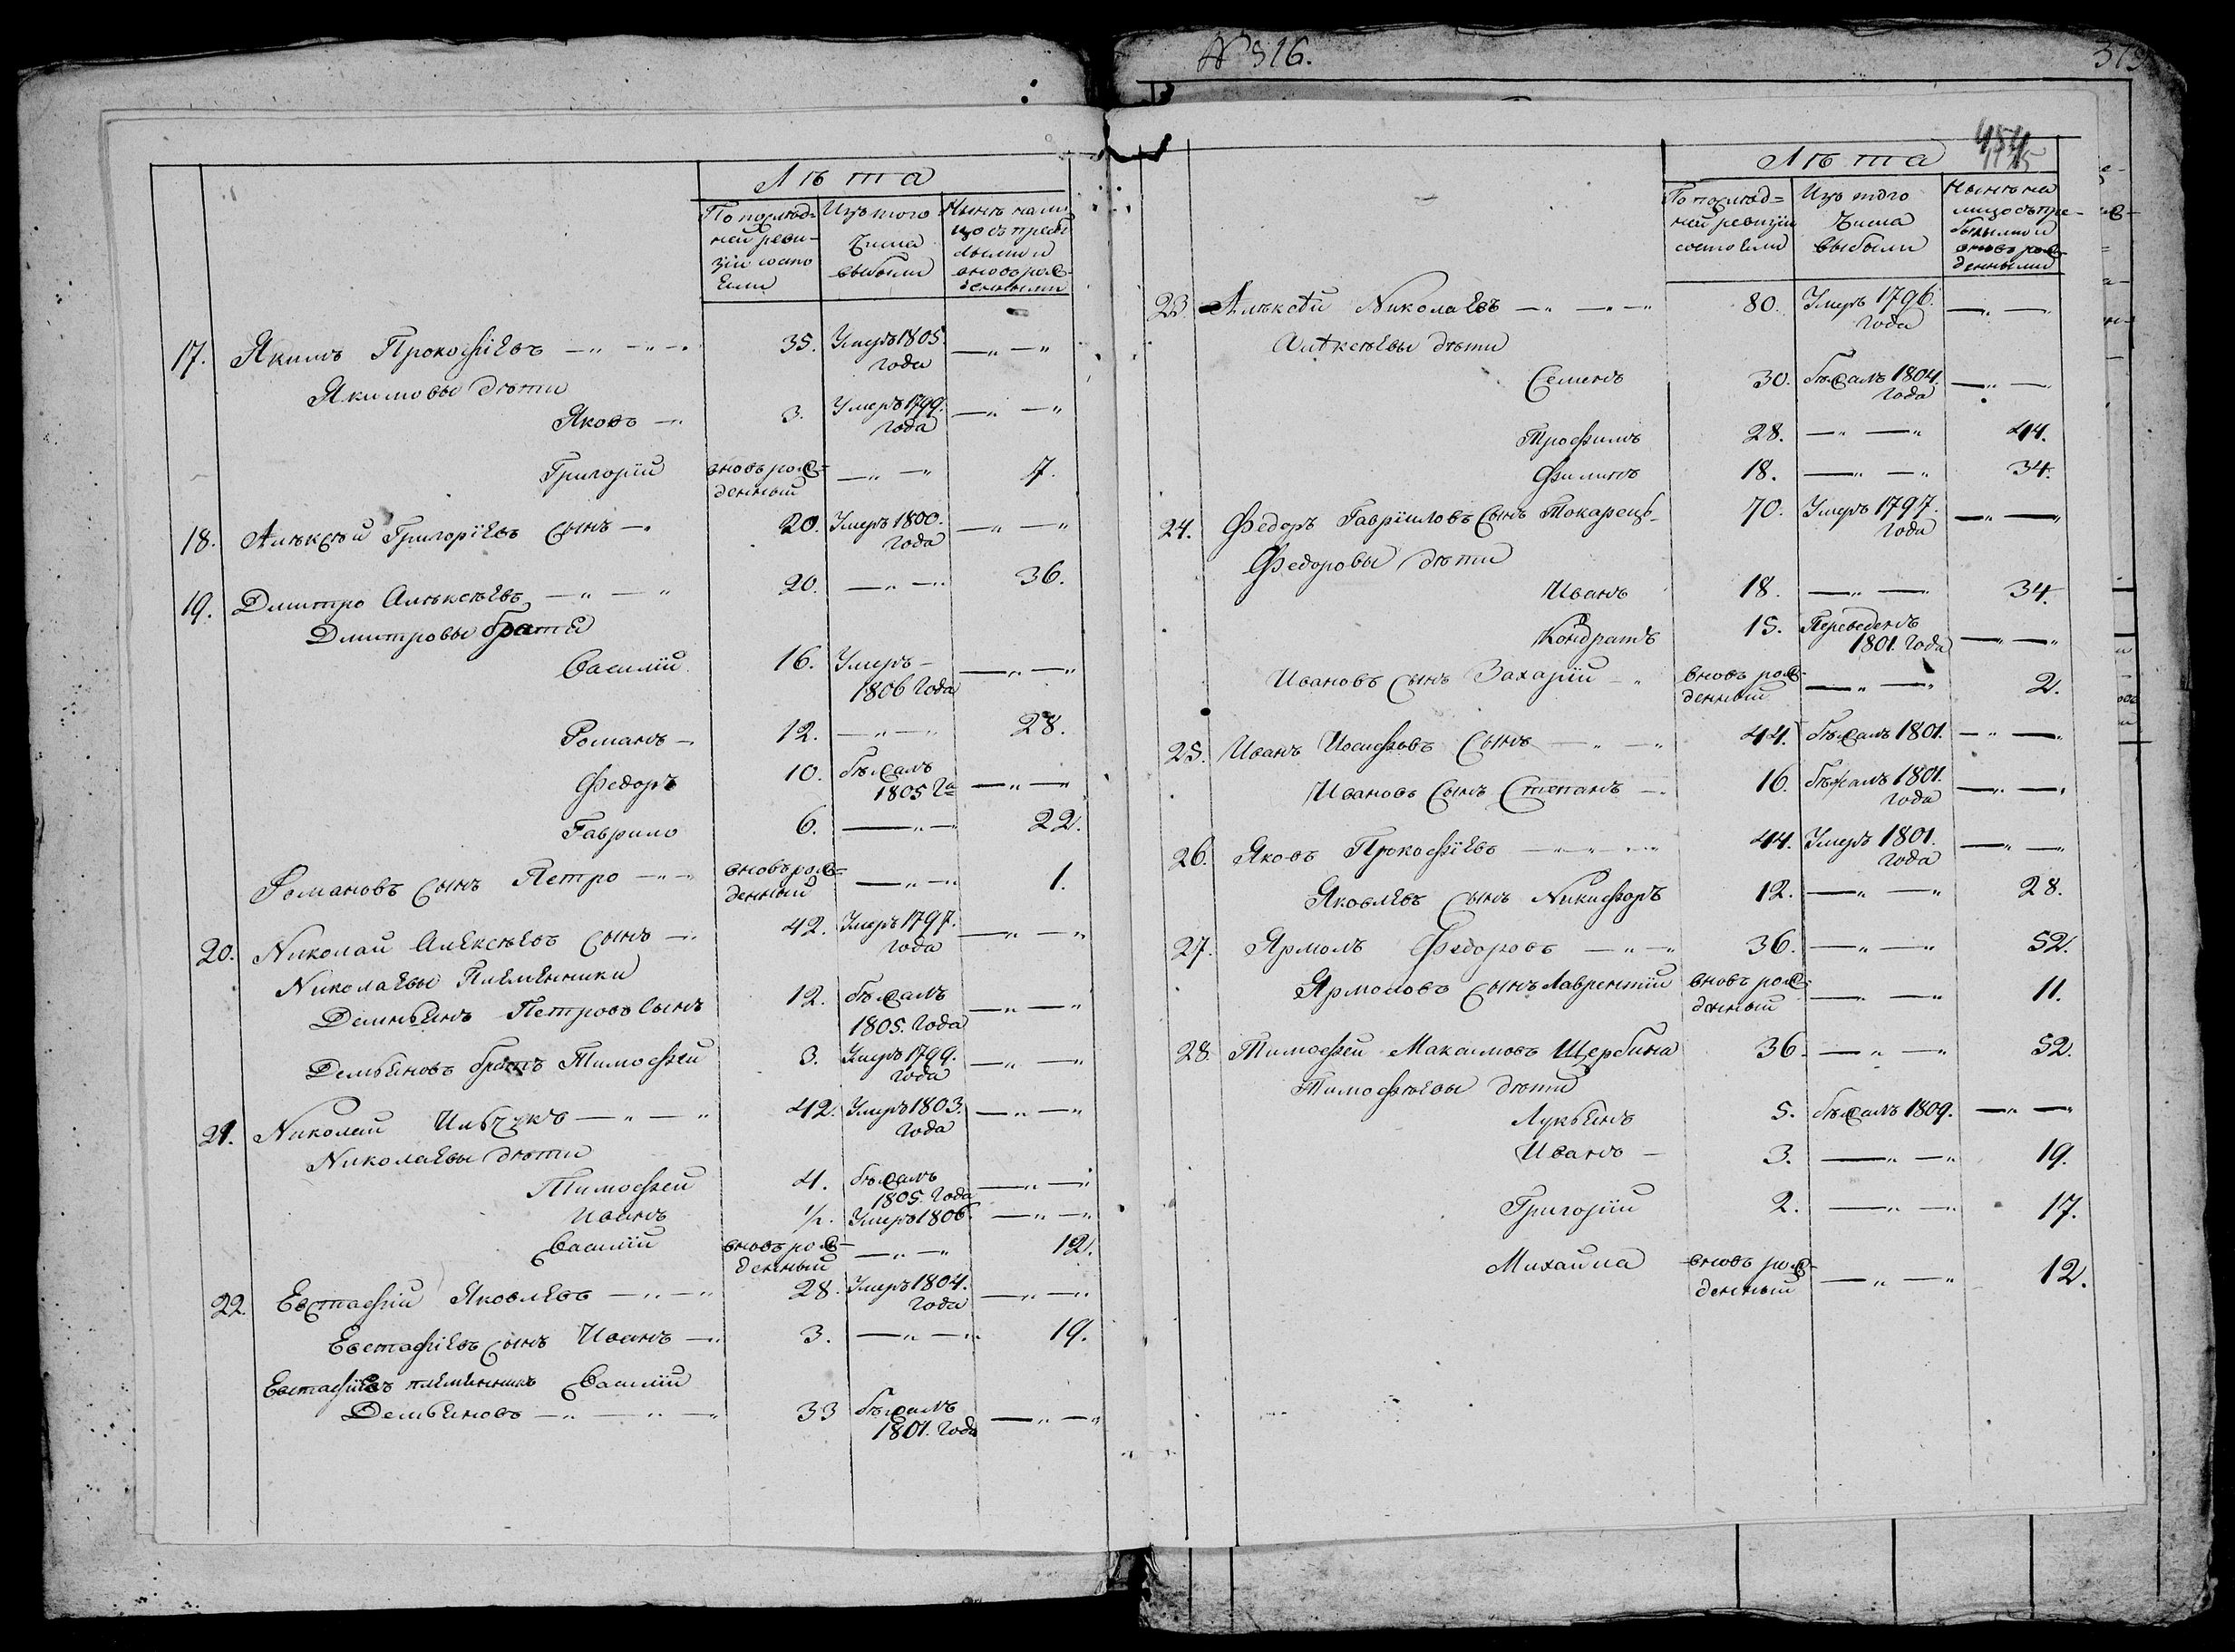 № 316.
Лѣта
По послѣд=
ней реви-
зіи состо
яли
Изъ того
Числа
выбыли
Нынѣ на ли
цо съ прибы
лыми и
вновь рож-
денными
17. Якимъ Прокофіевъ 35. Умеръ 1805.
года
Якимовы дѣти
Яковъ 3. Умеръ 1799.
года
Григорій вновь рож= 7.
денный
18. Алѣксѣй Григоріевъ сынъ 20. Умеръ 1800.
года
19. Дмитро Алѣксѣевъ 20. 36.
Дмитровы братья
Василій 16. Умеръ
1806 года
Романъ 12. 28.
Федоръ 10. бѣжалъ
1805 га
Гаврило 6. 22.
Романовъ сынъ Петро вновь рож= 1.
денный
20. Николай Алексѣевъ сынъ 42. Умеръ 1797.
года
Николаевы Племенники
Демьянъ Петровъ сынъ 12. бѣжалъ
1805. года
Демьяновъ братъ Тимофей 3. Умеръ 1799.
года
21. Николай Ильчукъ 42. Умеръ 1803.
года
Николаевы дѣти
Тимофей 4. бѣжалъ
1805. года
Иванъ 1/2. Умеръ 1806.
Василій вновь рож- 12.
денный
22. Евстафій Яковлевъ 28. Умеръ 1804.
года
Евстафіевъ сынъ Иванъ 3. 19.
Евстафіевъ племенникъ Василій
Демьяновъ 33 бѣжалъ
1801. года
Лѣта
По послѣд=
ней ревизіи
состояли
Изъ того
Числа
выбыли
Нынѣ на
лицо съ при-
былыми и
вновь рож-
денными
23. Алѣксѣй Николаевъ 80. Умеръ 1796.
года
Алѣксѣевы дѣти
Семенъ 30. бѣжалъ 1804.
года
Трофимъ 28. 44.
Филипъ 18. 34.
24. Федоръ Гавріиловъ сынъ Токарець 70. Умеръ 1797.
года
Федоровы дѣти
Иванъ 18. 34.
Кондратъ 15. Переведенъ
1801. года
Ивановъ сынъ Захарій вновь рож- 2.
денный
25. Иванъ Иосифовъ сынъ 44. бѣжалъ 1801.
Ивановъ сынъ Степанъ 16. бѣжалъ 1801.
года
26. Яковъ Прокофіевъ 44. Умеръ 1801.
года
Яковлевъ сынъ Никифоръ 12. 28.
27. Ярмолъ Федоровъ 36. 52.
Ярмоловъ сынъ Лаврентій вновь рож- 11.
денный
28. Тимофей Максимовъ Щербина 36. 52.
Тимофѣевы дѣти
Лукьянъ 5. бѣжалъ 1809.
Иванъ 3. 19.
Григорій 2. 17.
Михайла вновь рож- 12.
денный